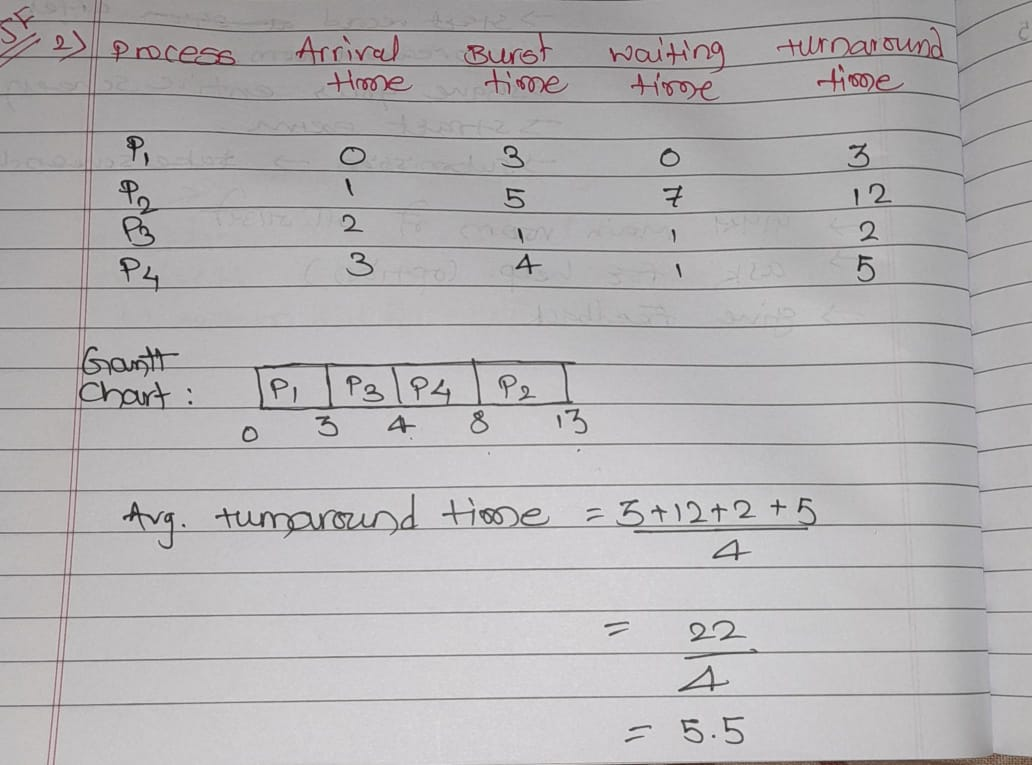 SF
2) Process Arrival time Burst time waiting time turnaround time
P1 0 3 0 3
P2 1 5 7 12
P3 2 1 1 2
P4 3 4 1 5
Gantt
Chart : P1 P3 P4 P2
0 3 4 8 13
Avg. turnaround time = 3+12+2+5
4
= 22
4
= 5.5